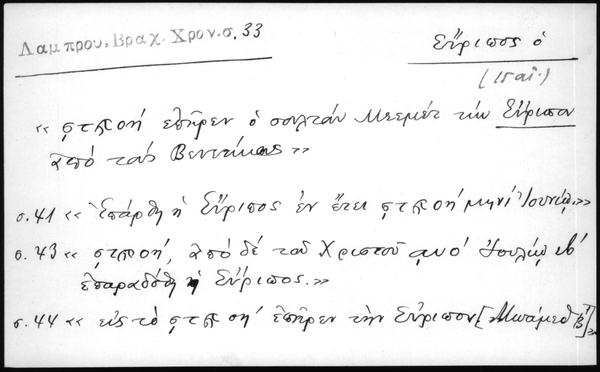 Λαμπρου, Βραχ. Χρον. σ. 33
Εὔριπος ὁ
(15 αἰ.)
« ͵ϛϡοή ἐπῆρεν ὁ σουλτάν Μεεμέτ τήν Εὔριπον
ἀπό τούς Βενετίκους »
σ. 41 « Ἐπάρθη ἡ Εὔριπος ἐν ἔτει ͵ϛϡοή μηνί Ἰουνίῳ.»
σ. 43 « ͵ϛϡοή, ἀπό δέ τοῦ Χριστοῦ ͵αυο' Ἰουλίῳ ιβ'
ἐπαραδόθη ἡ Εὔριπος.»
σ. 44 « εἰς τό ͵ϛϡοή ἐπῆρεν τὴν Εὔριπον [Μωάμεθ Β']»